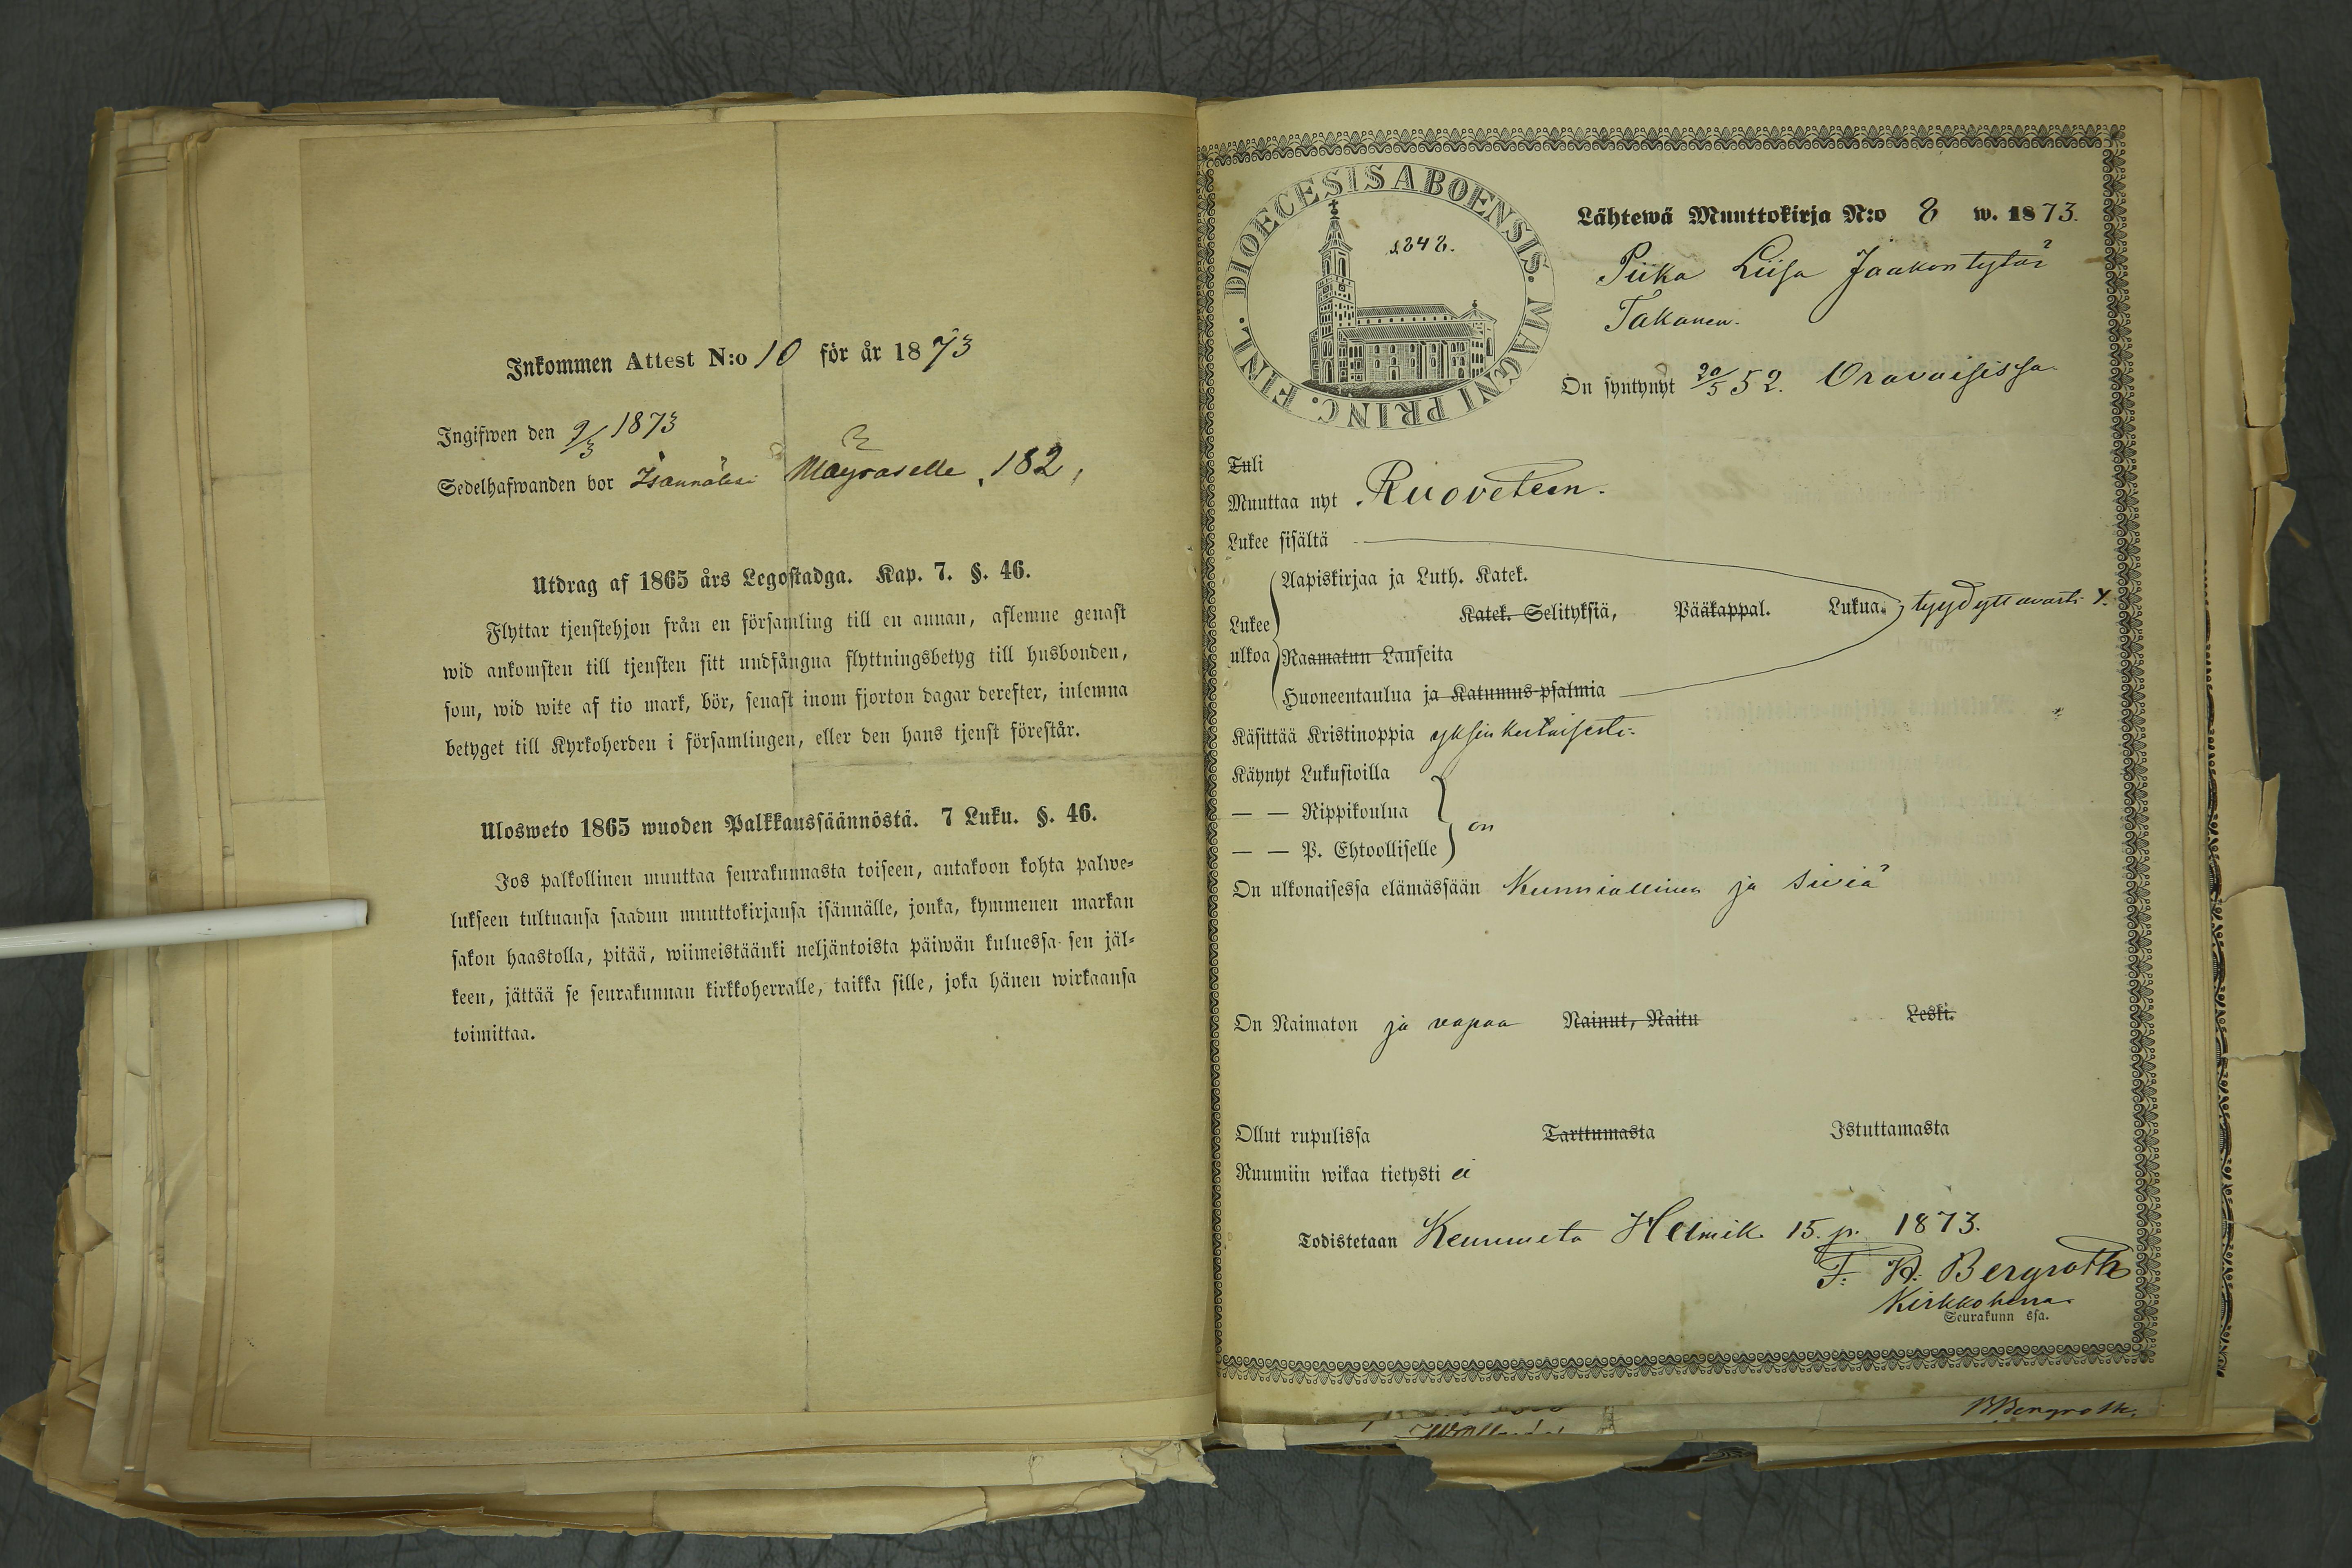 Inkommen Attest N:o 10 för år 1873
Ingifwen den 9/3 1873
Sedelhafwanden bor 182,
Utdrag af 1865 års Legostadga. Kap. 7. §. 46.
Flyttar tjenstehjon från en församling till en annan, aflemne genast
wid ankomsten till tjensten sitt undfångna flyttningsbetyg till husbonden,
som, wid wite af tio mark, bör, senast inom fjorton dagar derefter, inlemna
betyget till Kyrkoherden i församlingen, eller den hans tjenst förestår.
Ulosweto 1865 wuoden Palkkaussäännöstä. 7 Luku. §. 46.
Jos palkollinen muuttaa seurakunnasta toiseen, antakoon kohta palwe-
lukseen tultuansa saadun muuttokirjansa isännälle, jonka, kymmenen markan
sakon haastolla, pitää, wiimeistäänki neljäntoista päiwän kuluessa sen jäl-
keen, jättää se seurakunnan kirkkoherralle, taikka sille, joka hänen wirkaansa
toimittaa.
DIOECESIS ABOENSIS. MAGNI PRINC. FINL.
1848.
Lähtewä Muuttokirja N:o 8 w. 1873.
Piika Liisa Jaakontytär
Takanen.
On syntynyt 20/5 52. Oravaisissa.
Tuli
Muuttaa nyt Ruoveteen.
Lukee sisältä
Aapiskirjaa ja Luth. Katek.
Lukee ulkoa Katek. Selityksiä, Pääkappal. Lukua. tyydyttävästi
Raamatun Lauseita
Huoneentaulua ja Katumus-psalmia
Käsittää Kristinoppia yksinkertaisesti.
Käynyt Lukusioilla
— — Rippikoulua
on
— — P. Ehtoolliselle
On ulkonaisessa elämässään Kunniallinen ja siviä
On Naimaton ja vapaa Nainut, Naitu Leski.
Ollut rupulissa Tarttumasta Istuttamasta
Ruumiin wikaa tietysti ei
Todistetaan Helmik. 15. p. 1873.
Bergroth
Kirkkoherra
Seurakunn ssa.
Bergroth.